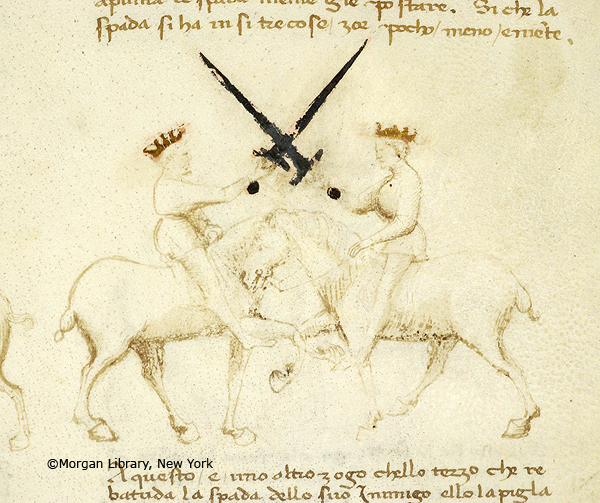 apunta le spade meme gie p̱ostare. Si che la
spada si ha in si tre cose / zoe pocho / meno / e niẽte.
©Morgan Library, New York
A questo / e / uno altro zogo chello terzo che re
batuda la spada dello suo Inimigo ello la pigla